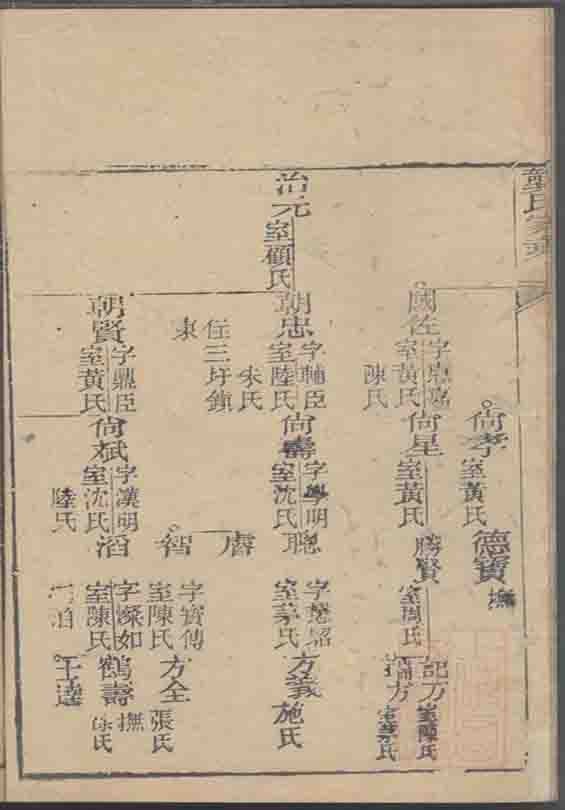 龔氏家
尙孝
室黃氏
德寶
撫
國佐
字鼎嘉
室黃氏
陳氏
尙星
室黃氏
勝賢
室周氏
記方
室陳氏
方
室蔡氏
治元
室顧氏
朝忠
字輔臣
室陸氏
朱氏
住三圩鎭
東
尙壽
字學明
室沈氏
聰
室茅氏
方義
施氏
膚
智
字寶傳
室陳氏
方全
張氏
朝賢
字鼎臣
室黃氏
尙斌
字漢明
室沈氏
陸氏
滔
字燦如
室陳氏
鶴壽
撫
徐氏
士達